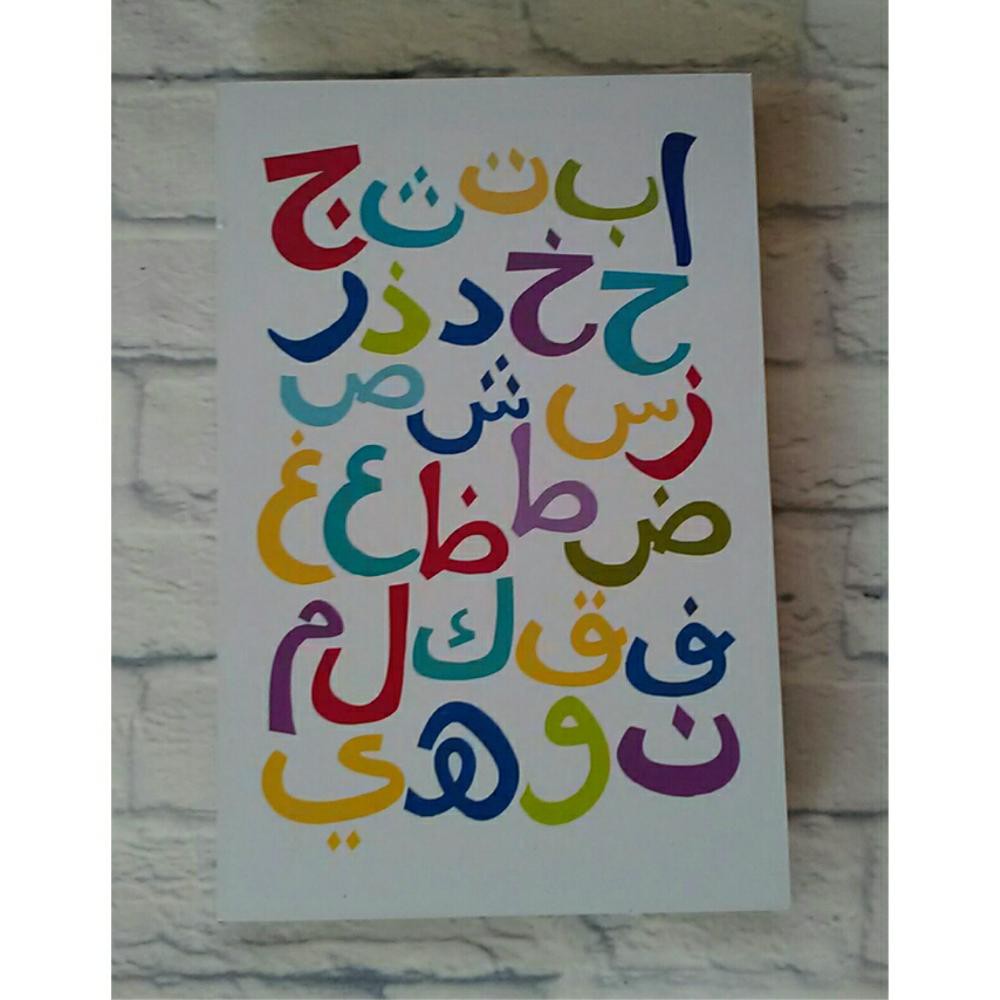 ا ب ت ث ج
ح خ د ذ ر
ز س ش ص
ض ط ظ ع غ
ف ق ك ل م
ن و ه ي